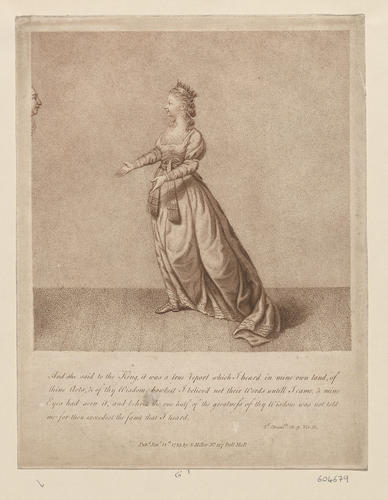 And she said to the King, it was a true Report which I heard in mine own land, of
thine Acts, & of thy Wisdom, howbeit I believ'd not their Words untill I came, & mine
Eyes had seen it, and behold the one half of the greatness of thy Wisdom was not told
me: for thou exceedest the fame that I heard.
Pall Mall
604679